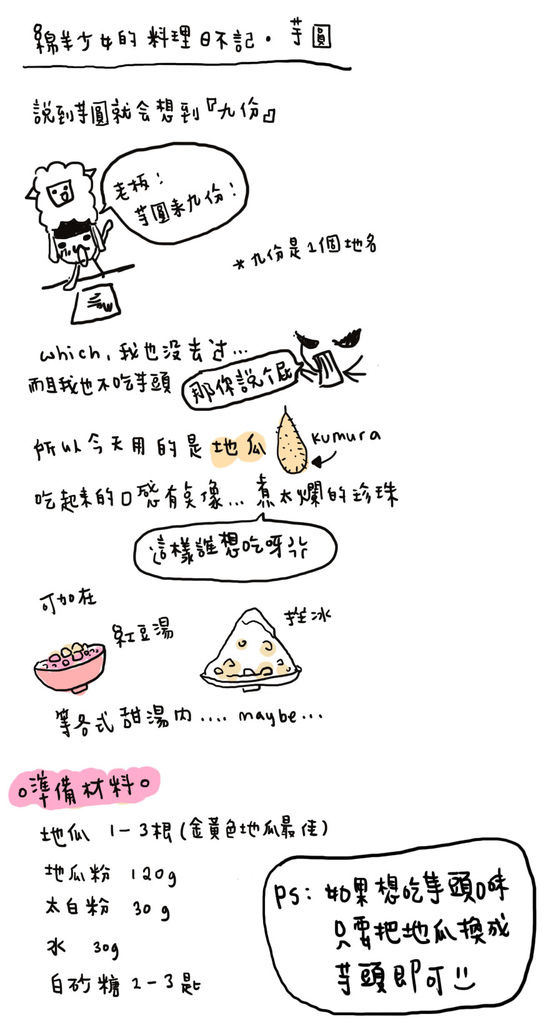 綿羊少女的料理日不記・芋圓
說到芋圓就会想到『九份』
老板！
芋圓來九份！
*九份是1個地名
which, 我也没去过...
而且我也不吃芋頭
那你說个屁
所以今天用的是地瓜
kumura
吃起來的口感有臭像... 煮太爛的珍珠
這樣誰想吃呀ㄞ
可加在
紅豆湯
挫冰
等各式甜湯内.... maybe...
。準備材料。
地瓜 1-3根(金黃色地瓜最佳)
地瓜粉 120g
太白粉 30g
水 30g
白砂糖 2-3匙
PS: 如果想吃芋頭口味
只要把地瓜換成
芋頭即可